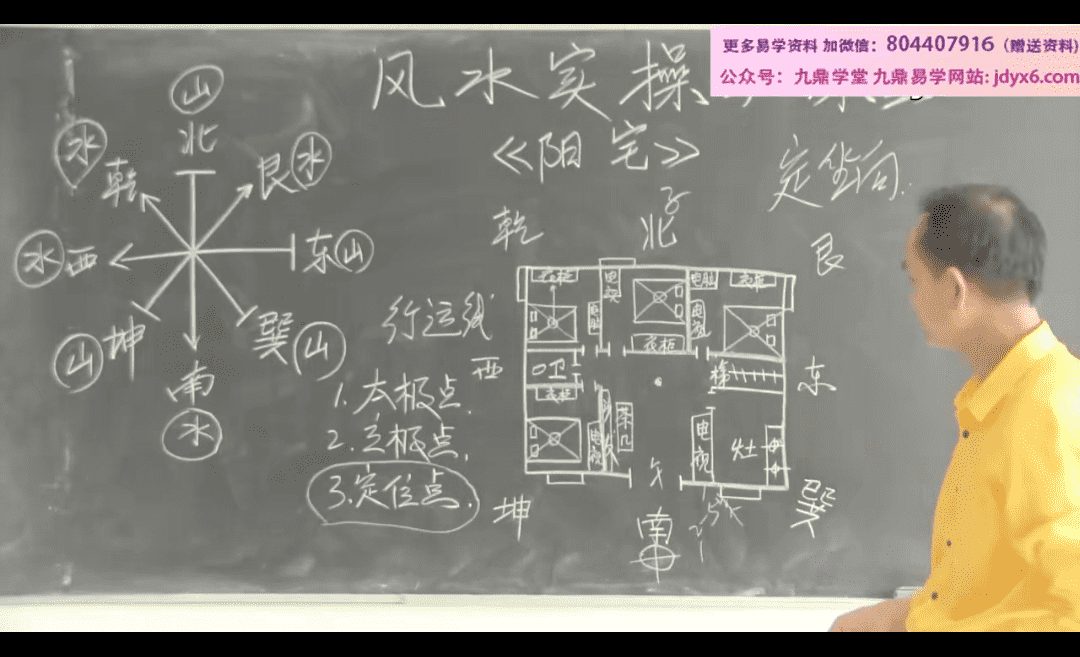 更多易学资料 加微信：804407916（赠送资料)
公众号：九鼎学堂 九鼎易学网站: jdyx6.com
风水实操
《阳宅》
定坐向.
山
北
水
乾
艮 水
水 西
东 山
坤
山
巽 山
南
水
行运线
1. 太极点.
2. 立极点.
3. 定位点.
子
乾
北
艮
西
东
坤
南
巽
衣柜
电视
电脑
衣柜
电视
衣柜
卫
衣柜
梯
电视
茶几
电视
灶